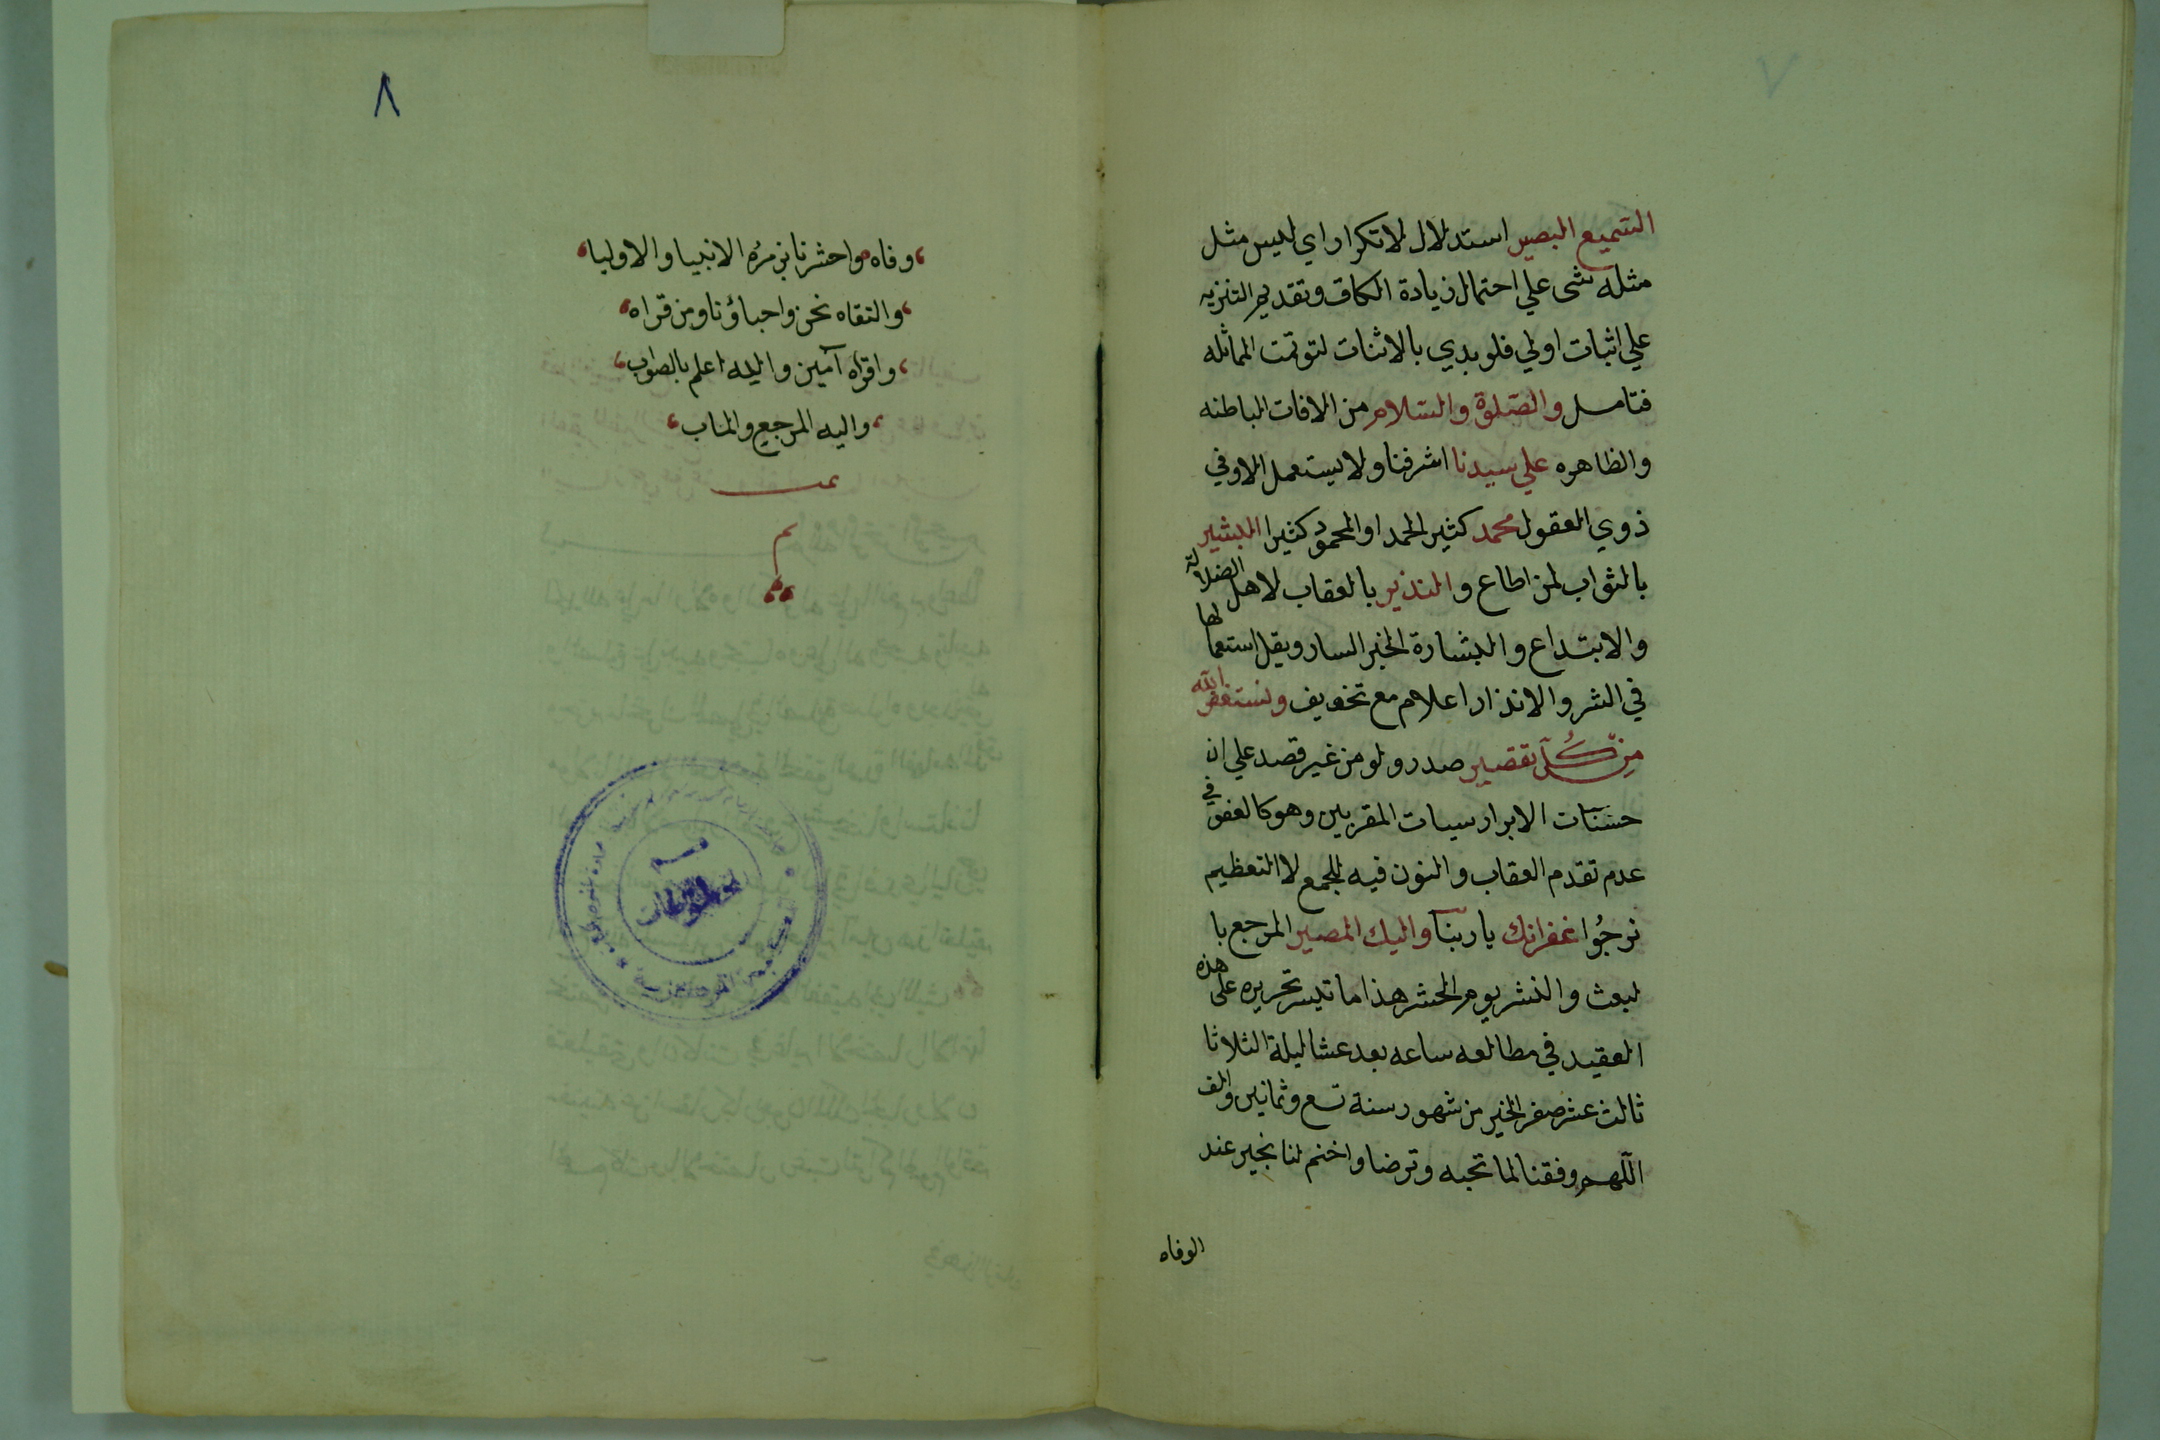 ٧
السميع البصير استدلال لا تكرار اي ليس مثل
مثله شى علي احتمال زيادة الكاف وتقديم التنزيه
علي اثبات اولي فلو بدي بالاثنات لتوتمت المماثله
فتامل والصلوة والسلام من الافات الباطنه
والظاهره علي سيدنا اشرفنا ولا يستعمل الا وفي
ذوي العقول محمد كثير الحمد او المحمود كثيرا البشير
بالثواب لمن اطاع والنذير بالعقاب لاهل الضلالة
والابتداع والبشارة الخبر السار ويقل استعمالها
في الشر والانذار اعلام مع تخويف ونستغفر الله
من كل تقصير صدر ولو من غير قصد علي ان
حسنات الابرار سيات المقربين وهو كالعفو في
عدم تقدم العقاب والنون فيه للجمع لا التعظيم
نرجُوا غفرانك يا ربنا واليك المصير المرجع با
لبعث والنشر يوم الحشر هذا ما تيسر تحريره على هذه
العقيد في مطالعه ساعه بعد عشا ليلة الثلاثا
ثالث عشر صفر الخير من شهور سنة تسع وثمانين والف
اللهم وفقنا لما تحبه وترضا واختم لنا بخير عند
الوفاه
٨
وفاه واحشرنا في زمره الانبيا والاوليا
والتقاه نحن واحباؤنا ومن قراه
واقراه آمين والله اعلم بالصواب
واليه المرجع والماب
تمت
م